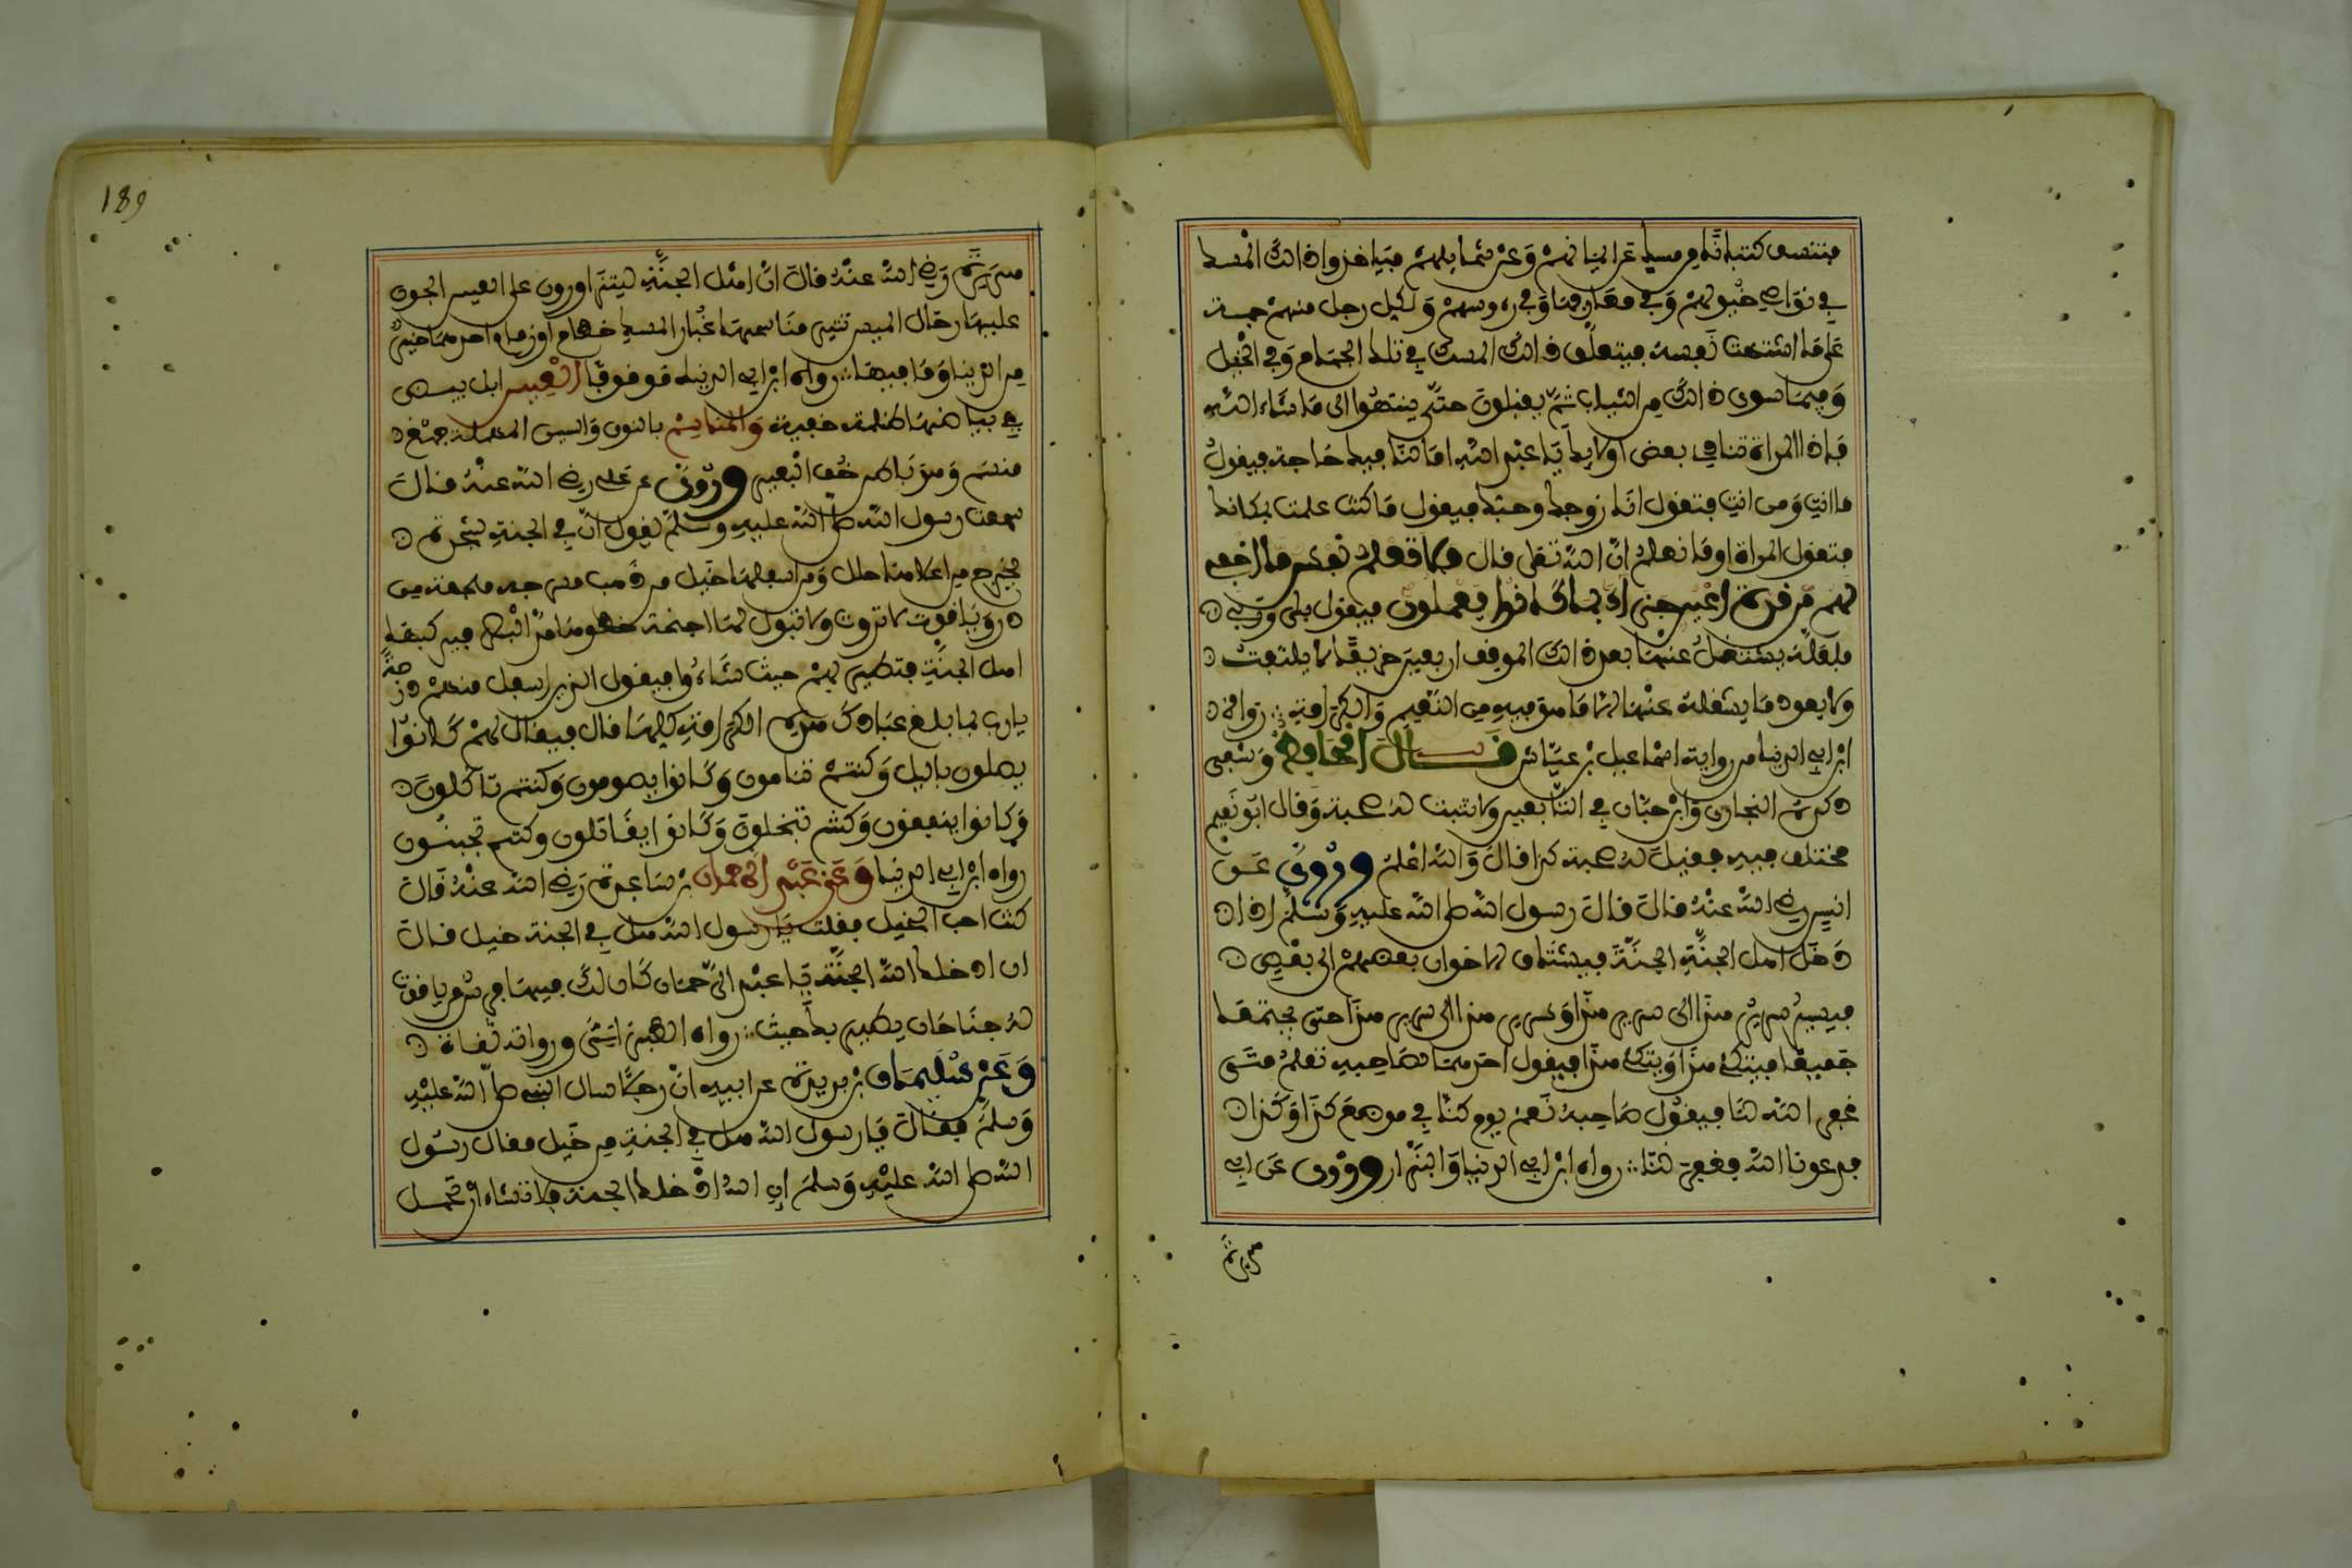 فتنسف كثبانا من مسك عن ايمانهم وعن شمايلهم فياخذوا ذالك المسك
في نواصي خيولهم وفي معارفها وفي رءوسهم ولكل رجل منهم جمة
على ما اشتهت نفسه فيتعلق ذالك المسك في تلك الجمام وفي الخيل
وفيما سوى ذالك من الثياب ثم يقبلون حتى ينتهوا الى ما شاء الله
فاذا المراة تنادي بعض اولايك يا عبد الله اما لنا فيك حاجة فيقول
ما انت ومن انت فتقول انا زوجك وحبك فيقول ما كنت علمت بمكانك
فتقول المراة اوما تعلم ان الله تعلى قال فلا تعلم نفس ما اخفي
لهم من قرة اعين جزاء بما كانوا يعملون فيقول بلى وربي
فلعله يشتغل عنها بعد ذالك الموقف اربعين خريفا لا يلتفت
ولا يعود ما يشغله عنها الا ما هو فيه من النعيم والكرامة رواه
ابن ابي الدنيا من رواية اسماعيل بن عياش قال الحافظ وشفي
ذكره البخاري وابن حبان في التابعين ولا تثبت له صحبة وقال ابو نعيم
مختلف فيه فقيل له صحبة كذا قال والله اعلم وروي عن
انس رضي الله عنه قال قال رسول الله صلى الله عليه وسلم اذا
دخل اهل الجنة الجنة فيشتاق الاخوان بعضهم الى بعض
فيسير سرير هذا الى سرير هذا وسرير هذا الى سرير هذا حتى يجتمعا
جميعا فيتكئ هذا ويتكئ هذا فيقول احدهما لصاحبه تعلم متى
غفر الله لنا فيقول صاحبه نعم يوم كنا في موضع كذا وكذا
فدعونا الله فغفر لنا رواه ابن ابي الدنيا والبزار وروى عن ابي
هريرة
189
هريرة رضي الله عنه قال ان اهل الجنة ليتزاورون على العيس الجون
عليها رحال الميس تثير مناسمها غبار المسك خطام او زمام احدهما خير
من الدنيا وما فيها رواه ابن ابي الدنيا موقوفا العيس ابل بيض
في بياضها ظلمة خفية والمناسم بالنون والسين المهملة جمع
منسم وهو باطن خف البعير وروي عن علي رضي الله عنه قال
سمعت رسول الله صلى الله عليه وسلم يقول ان في الجنة شجرة
يخرج من اعلاها حلل ومن اسفلها خيل من ذهب مسرجة ملجمة من
در وياقوت لا تروث ولا تبول لها اجنحة خطوها مد البصر فيركبها
اهل الجنة فتطير بهم حيث شاءوا فيقول الذين اسفل منهم درجة
يارب بما بلغ عبادك هذه الكرامة كلها قال فيقال لهم كانوا
يصلون باليل وكنتم تنامون وكانوا يصومون وكنتم تاكلون
وكانوا ينفقون وكنتم تبخلون وكانوا يقاتلون وكنتم تجبنون
رواه ابن ابي الدنيا وعن عبد الرحمان بن ساعدة رضي الله عنه قال
كنت احب الخيل فقلت يا رسول الله هل في الجنة خيل فقال
ان ادخلك الله الجنة يا عبد الرحمان كان لك فيها فرس من ياقوت
له جناحان يطير بك حيث رواه الطبراني ورواته ثقاة
وعن سليمان بن بريدة عن ابيه ان رجلا سال النبي صلى الله عليه
وسلم فقال يا رسول الله هل في الجنة من خيل فقال رسول
الله صلى الله عليه وسلم ان الله ادخلك الجنة فلا تشاء ان تحمل